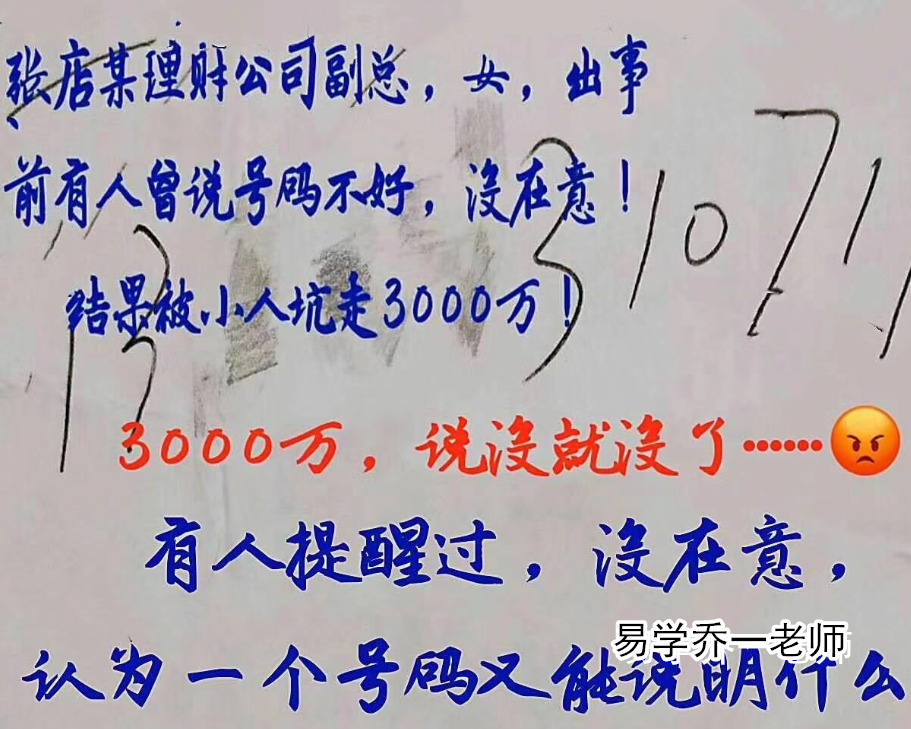 张店某理财公司副总，女，出事
前有人曾说号码不好，没在意！
结果被小人坑走3000万！
13
310711
3000万，说没就没了……😡
有人提醒过，没在意，
认为一个号码又能说明什么
易学乔一老师